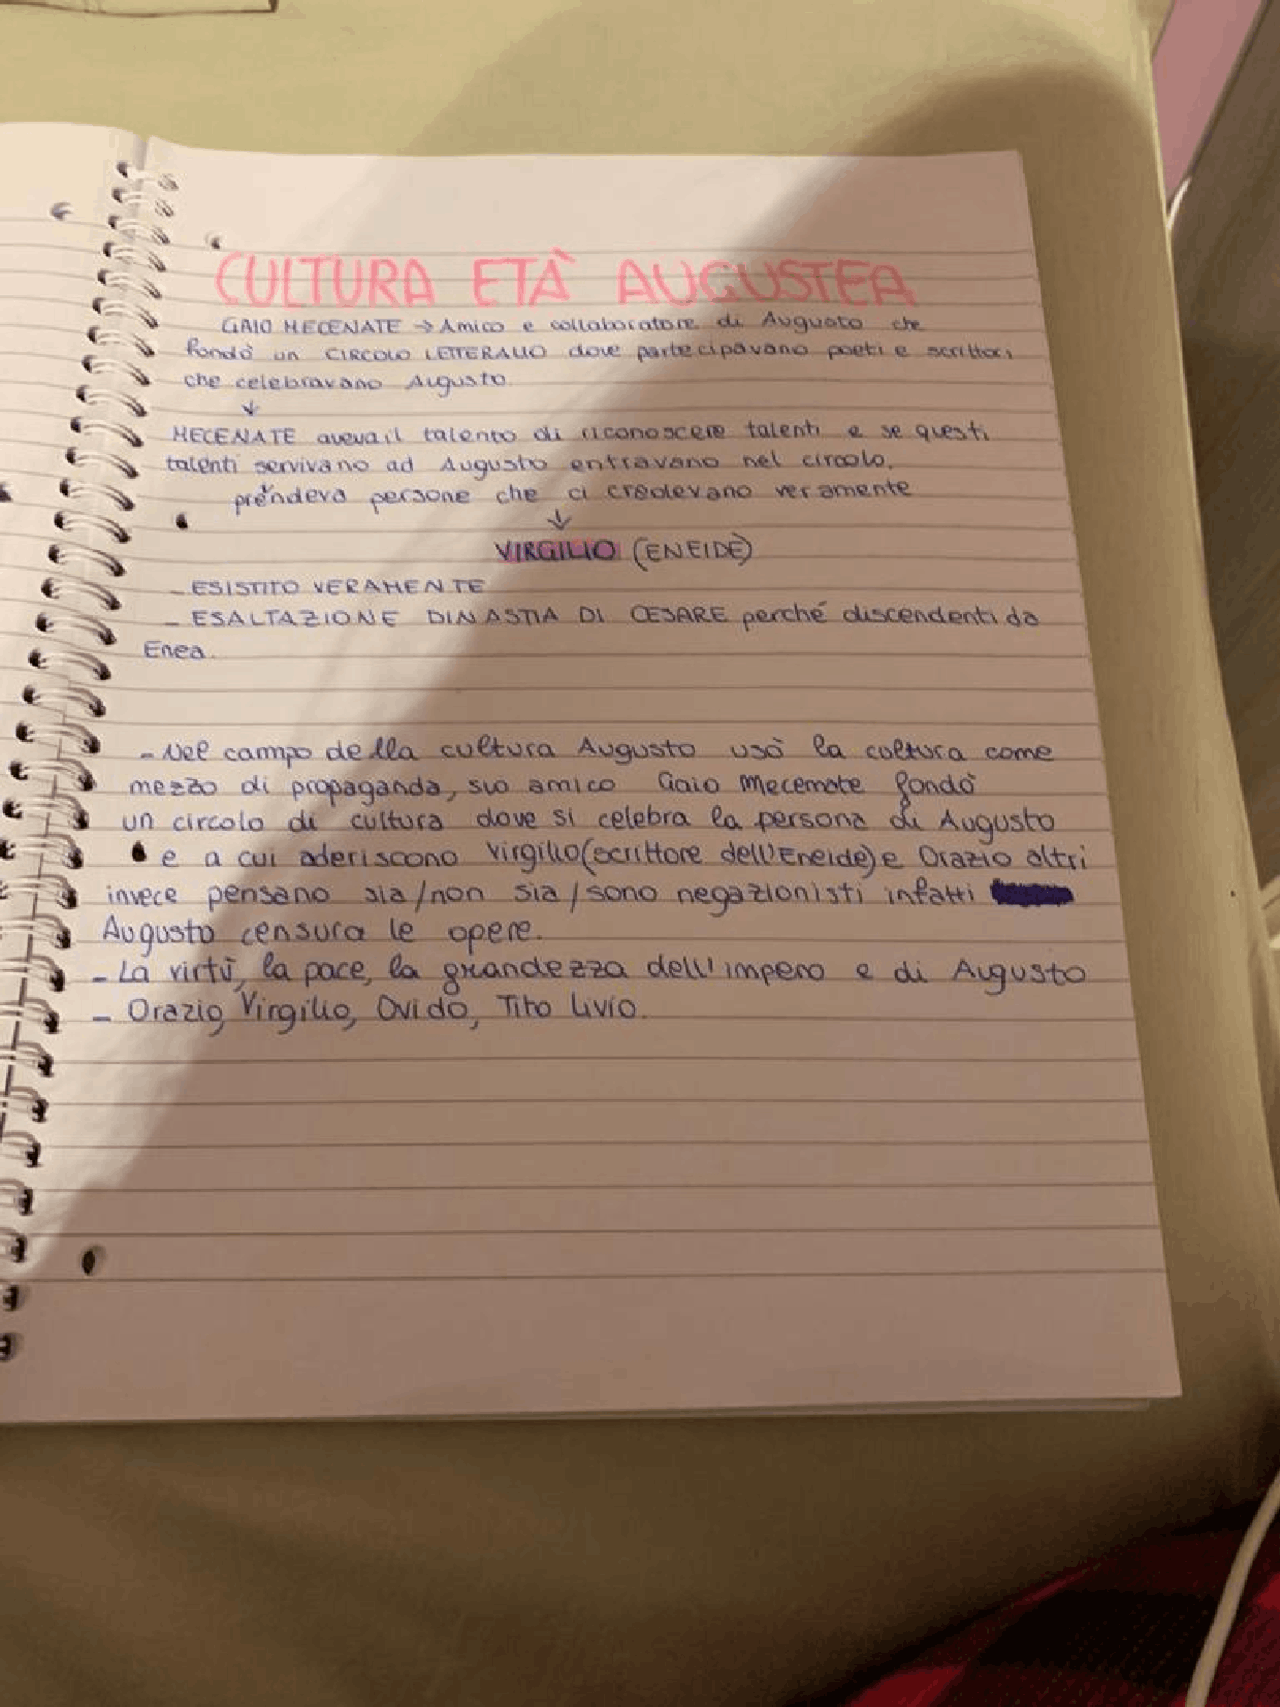 CULTURA ETÀ AUGUSTEA
GAIO MECENATE → Amico e collaboratore di Augusto che
fondò un CIRCOLO LETTERALIO dove partecipavano poeti e scrittori
che celebravano Augusto.
↓
MECENATE aveva il talento di riconoscere talenti e se questi
talenti servivano ad Augusto entravano nel circolo,
prendeva persone che ci credevano veramente
↓
VIRGILIO (ENEIDE)
- ESISTITO VERAMENTE
- ESALTAZIONE DINASTIA DI CESARE perché discendenti da
Enea.
- Nel campo della cultura Augusto usò la cultura come
mezzo di propaganda, suo amico Gaio Mecenate fondò
un circolo di cultura dove si celebra la persona di Augusto
e a cui aderiscono Virgilio (scrittore dell'Eneide) e Orazio altri
invece pensano sia/non sia/sono negazionisti infatti
Augusto censura le opere.
- La virtù, la pace, la grandezza dell'impero e di Augusto
- Orazio, Virgilio, Ovido, Tito Livio.